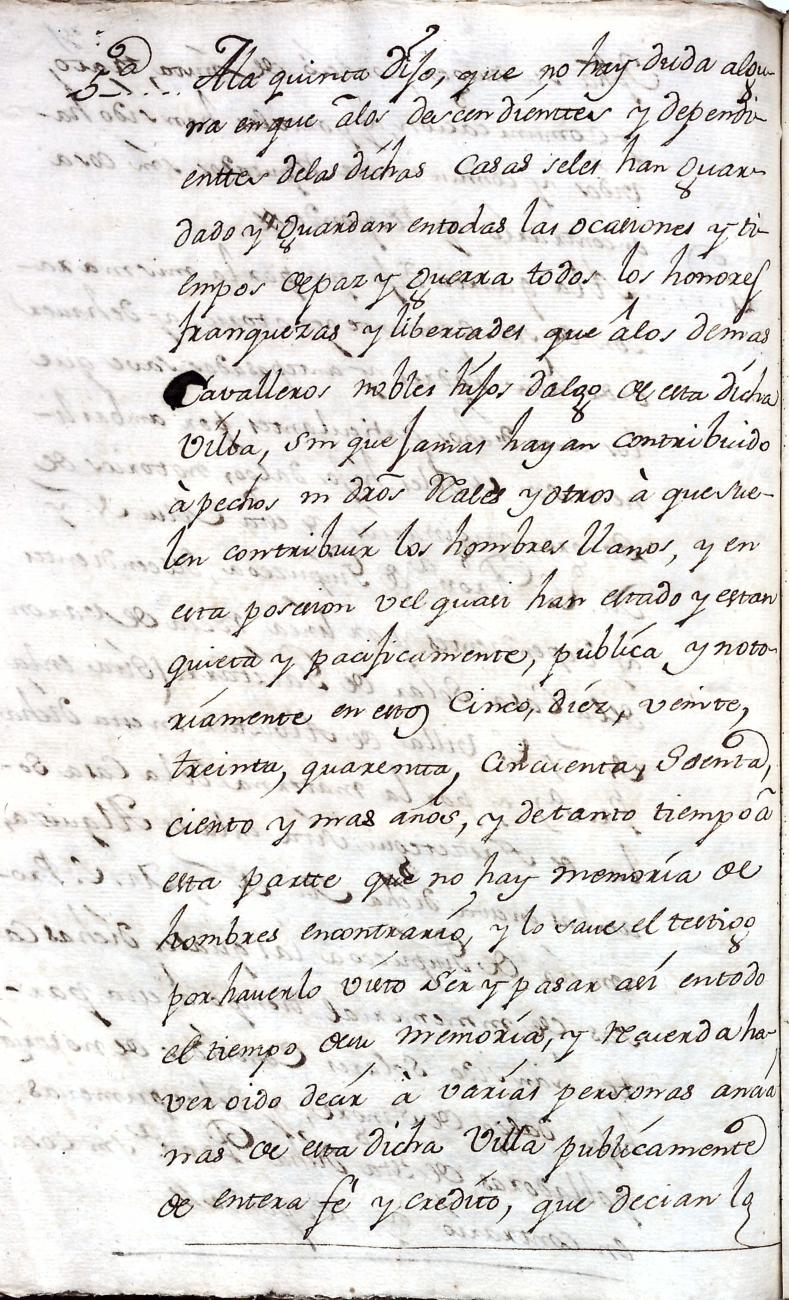 5ª... A la quinta dijo, que no hay duda algu-
na enque âlos descendienttes y dependi-
enttes delas dichas Casas seles han Guar-
dado y Guardan entodas las ocasiones y ti-
empos de paz y Guerra todos los honores
franquezas y libertades que âlos demas
Cavalleros nobles hijos dalgo de esta dicha
Villa, sin que Jamas hayan contribuido
à pechos ni dros̃ Rˢales y otros à que sue-
len contribuir los hombres llanos, y en
esta posesion vel quasi han estado y estan
quieta y pacificamente, publica y noto-
riamente en estos Cinco, diéz, veinte,
treinta, quarentta, Cincuenta, Sesenta,
ciento y mas años, y detanto tiempo â
esta partte que no hay memoria de
hombres encontrario, y lo save el testigo
por haverlo visto Ser y pasar asi entodo
el tiempo desu memoria, y Recuerda ha-
ver oido decir à varias personas ancia
nas de esta dicha Villa publicamente
de entera feé y credito, que decian lo